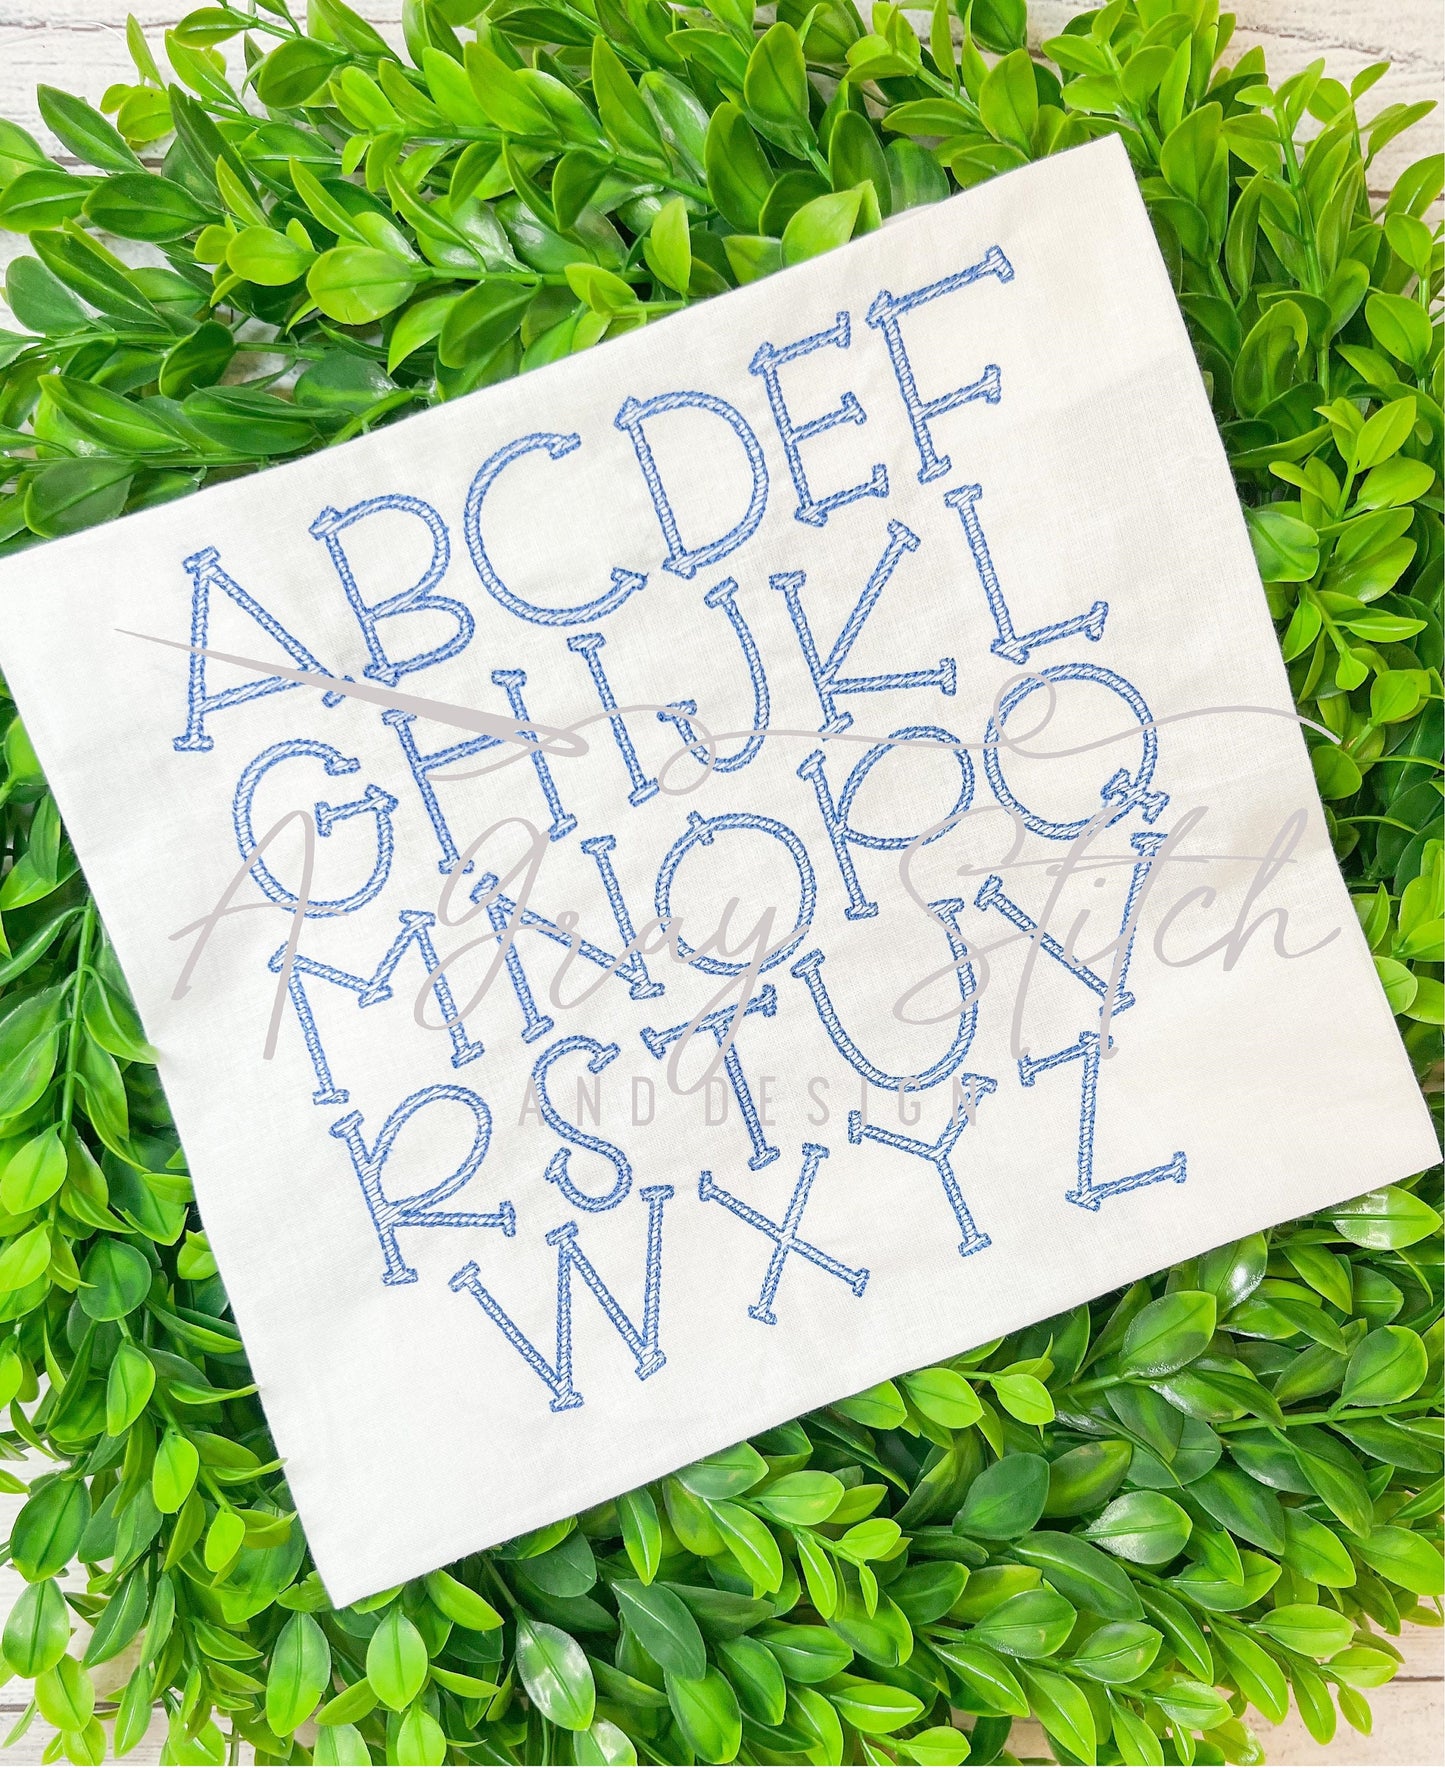 ABCDEF
GHIJKL
MNOPQ
RSTUV
WXYZ
A Gray Stitch
AND DESIGN